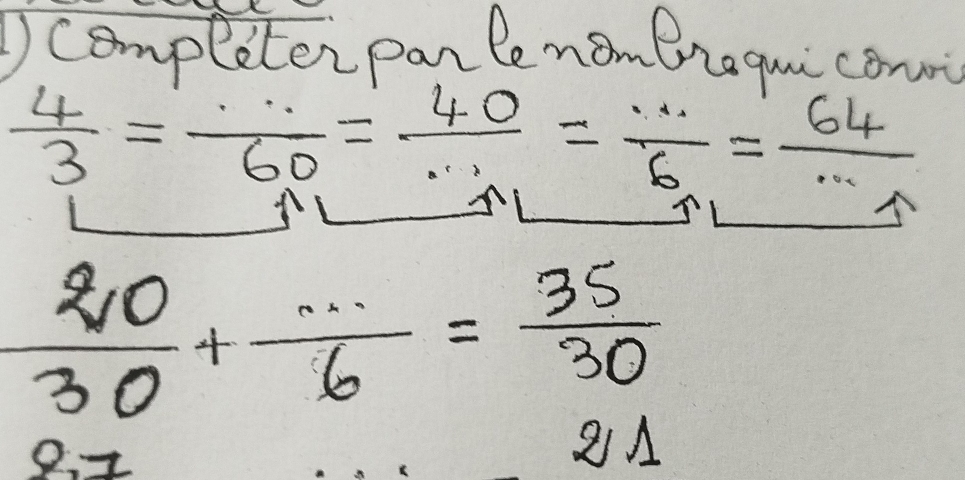 1) Compléter par le nombre qui convi
4/3 = .../60 = 40/... = .../6 = 64/...
20/30 + .../6 = 35/30
27 ... 21